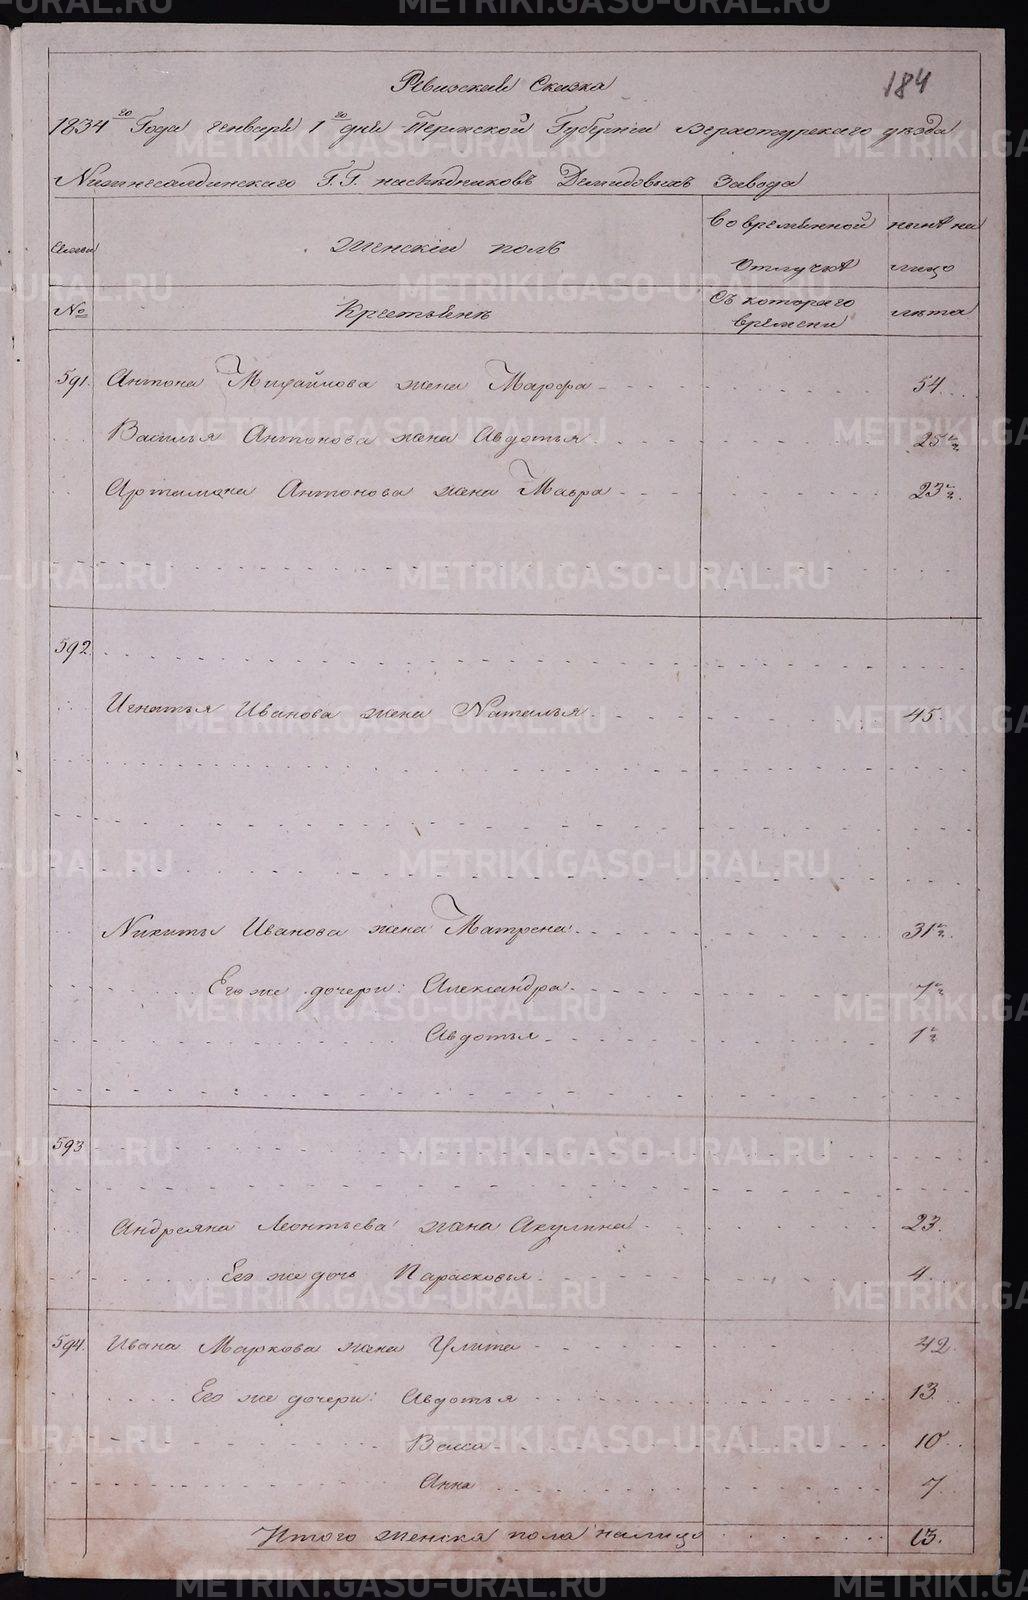 184
Ревизская Сказка
1834го Года генваря 1го дня Пермской Губернии Верхотурскаго уѣзда
Нижнесалдинскаго Г.Г. наслѣдниковъ Демидовыхъ Завода
Семьи
Женскій полъ
Во временной отлучкѣ
нынѣ на лицо
№
Крестьянъ
Съ котораго времени
лѣта
591. Антона Михайлова жена Марфа 54.
Василья Антонова жена Авдотья 25 1/2
Артамона Антонова жена Мавра 23 1/2.
592.
Игнатья Иванова жена Наталья 45.
Никиты Иванова жена Матрена 31 1/2.
Его же дочери: Александра 7 1/2
Авдотья 1 1/2
593
Андреяна Леонтьева жена Акулина 23.
Его же дочь Парасковья 4.
594. Ивана Маркова жена Улита 42
Его же дочери: Авдотья 13
Васса 10
Анна 7
Итого женска пола налицо 13.
METRIKI.GASO-URAL.RU